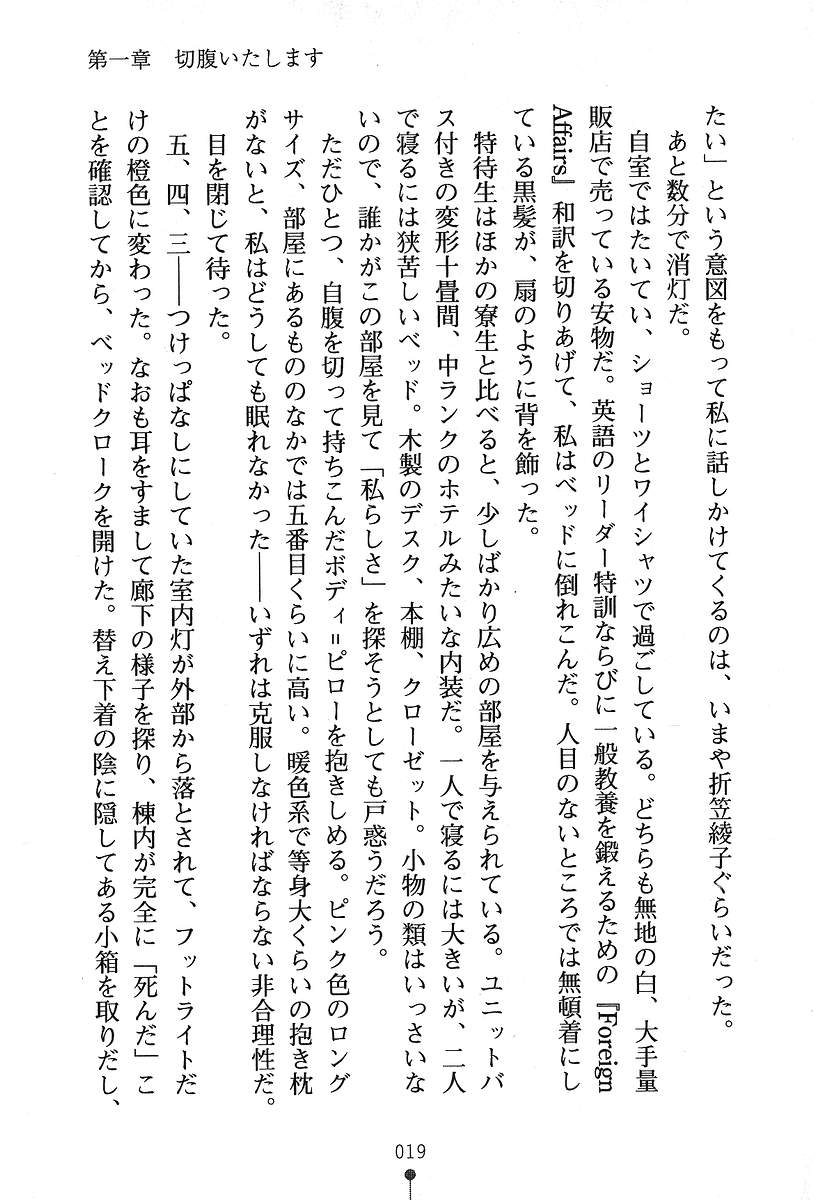 第一章　切腹いたします
たい」という意図をもって私に話しかけてくるのは、いまや折笠綾子ぐらいだった。
　あと数分で消灯だ。
　自室ではたいてい、ショーツとワイシャツで過ごしている。どちらも無地の白、大手量
販店で売っている安物だ。英語のリーダー特訓ならびに一般教養を鍛えるための『Foreign
Affairs』和訳を切りあげて、私はベッドに倒れこんだ。人目のないところでは無頓着にし
ている黒髪が、扇のように背を飾った。
　特待生はほかの寮生と比べると、少しばかり広めの部屋を与えられている。ユニットバ
ス付きの変形十畳間、中ランクのホテルみたいな内装だ。一人で寝るには大きいが、二人
で寝るには狭苦しいベッド。木製のデスク、本棚、クローゼット。小物の類はいっさいな
いので、誰かがこの部屋を見て「私らしさ」を探そうとしても戸惑うだろう。
　ただひとつ、自腹を切って持ちこんだボディ＝ピローを抱きしめる。ピンク色のロング
サイズ、部屋にあるもののなかでは五番目くらいに高い。暖色系で等身大くらいの抱き枕
がないと、私はどうしても眠れなかった――いずれは克服しなければならない非合理性だ。
　目を閉じて待った。
　五、四、三――つけっぱなしにしていた室内灯が外部から落とされて、フットライトだ
けの橙色に変わった。なおも耳をすまして廊下の様子を探り、棟内が完全に「死んだ」こ
とを確認してから、ベッドクロークを開けた。替え下着の陰に隠してある小箱を取りだし、
019